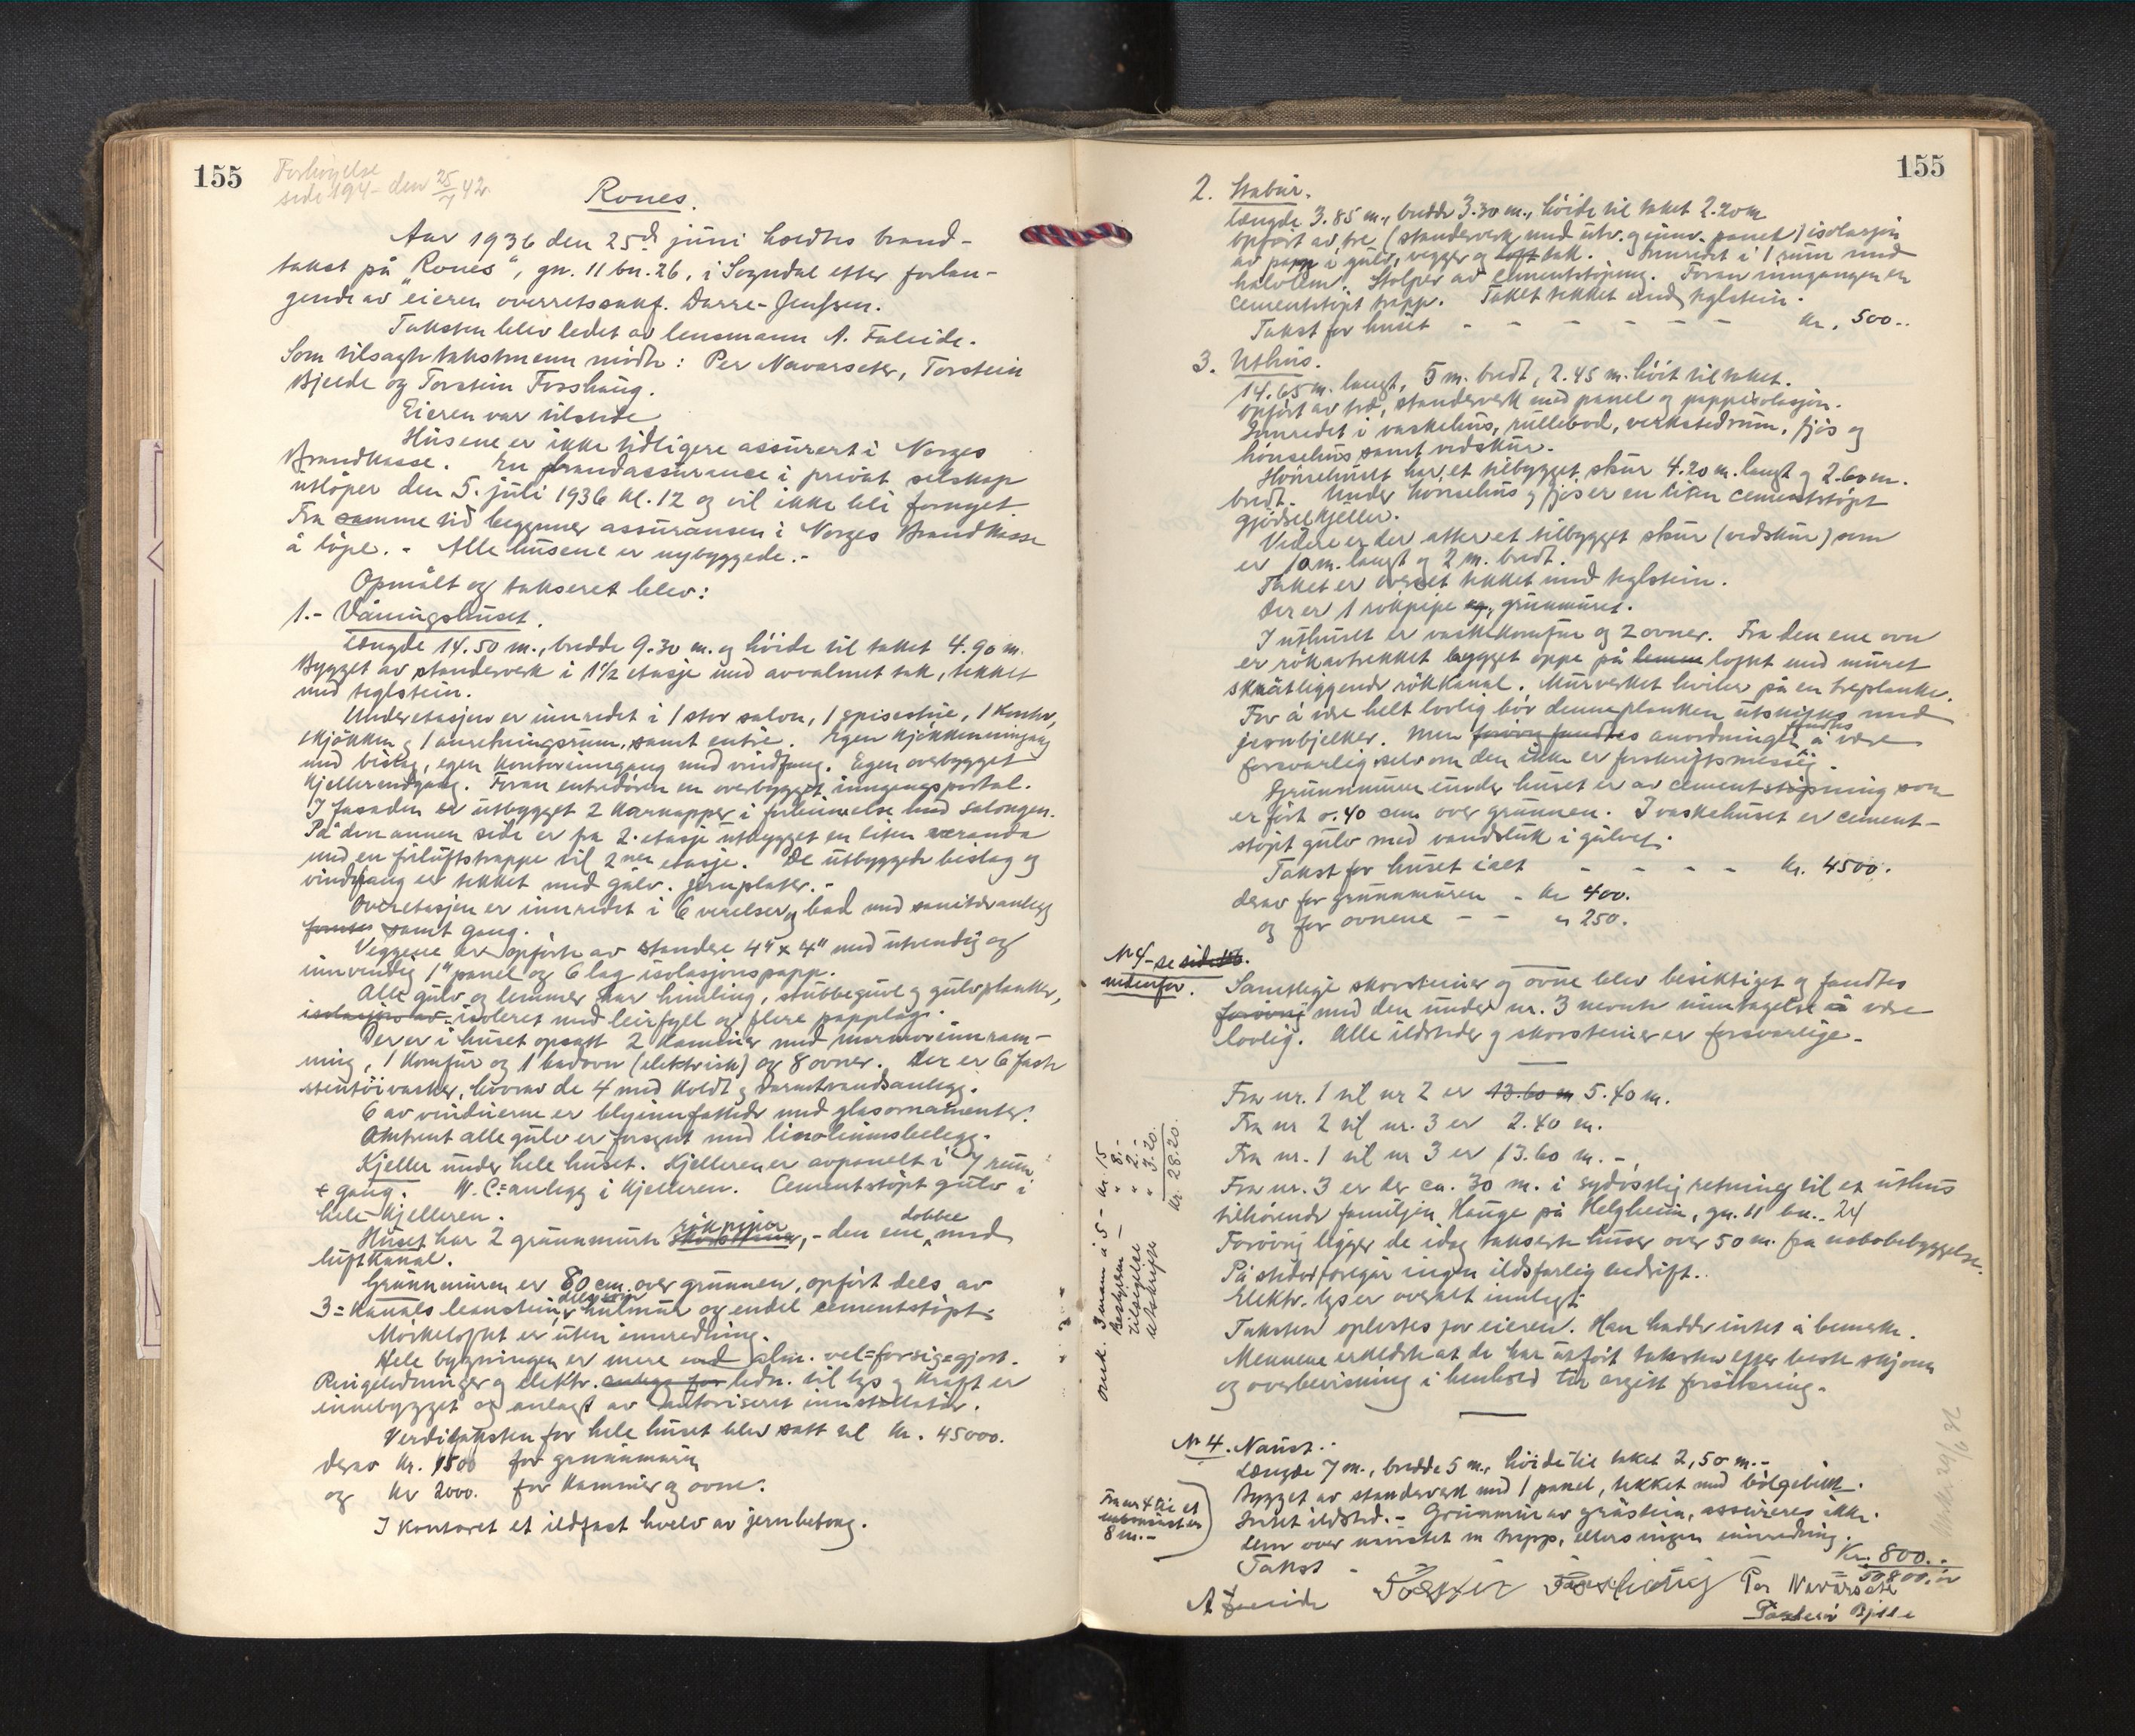 155
Forhøyelse
side 194 - den 25/7 42.
Rones.
Aar 1936 den 25de juni holdtes brand-
takst på "Rones", gn. 11 bn. 26, i Sogndal efter forlan-
gende av eieren overretssakf. Darre-Jenssen.
Taksten blev ledet av lensmann A. Faleide.
Som tilsagte takstmenn møtte: Per Navarseter, Torstein
Bjelde og Torstein Fosshaug.
Eieren var tilstede
Husene er ikke tidligere assurert i Norges
Brandkasse. En brandassurance i privat selskap
utløper den 5. juli 1936 kl. 12 og vil ikke bli fornyet
Fra samme tid begynner assuransen i Norges Brandkasse
å løpe. - Alle husene er nybyggede. -
Opmålt og takseret blev:
1.- Våningshuset.
Længde 14.50 m., bredde 9.30 m. og høide til taket 4.90 m.
Bygget av standerverk i 1 1/2 etasje med avvalmet tak, tekket
med teglstein.
Underetasjen er innredet i 1 stor salon, 1 spisestue, 1 kontor,
1 kjøkken og 1 anretningsrum, samt entré. Egen kjøkkeninngang
med bislag, egen kontorinngang med vindfang. Egen overbygget
kjellernedgang. Foran entredøren en overbygget inngangsportal.
I fasaden er utbygget 2 karnapper i forbinnelse med salongen.
På den annen side er fra 2. etasje utbygget en liten veranda
med en friluftstrappe til 2nen etasje. De utbyggede bislag og
vindfang er tekket med galv. jernplater. -
Overetasjen er innredet i 6 verelser og bad med sanitæranlegg
samt gang.
Veggene er opført av standere 4" x 4" med utvendig og
innvendig 1" panel og 6 lag isolasjonspapp.
Alle gulv og lemmer har himling, stubbegulv og gulvplanker,
isolasjon av isoleret med leirfyll og flere papplag.
Der er i huset opsatt 2 kaminer med marmorinnram-
ning, 1 komfur og 1 badovn (elektrisk) og 8 ovner. Der er 6 faste
stentøivasker, hvorav de 4 med koldt og varmtvandsanlegg.
6 av vinduerne er blyinnfattede med glasornamenter.
Omtrent alle gulv er forsynt med linoleumsbelegg.
Kjeller under hele huset. Kjelleren er avpanelt i 7 rum
+ gang. W.C=anlegg i kjelleren. Cementstøpt gulv i
hele kjelleren.
Huset har 2 grunnmurte skorstener rökpiper, - den ene dobbel med
luftkanal.
Grunnmuren er 80 cm. over grunnen, opført dels av
3=kanals leansten, dels av hulmur og endel cementstøpt.
Mørkeloftet er uten innredning.
Hele bygningen er mere end alm. vel=forsig=gjort.
Ringeledninger og elektr. anlegg for ledn. til lys og kraft er
innebygget og anlagt av autoriseret innstallatør.
Verditaksten for hele huset blev satt til kr. 45000.
derav kr. 1500 for grunnmuren
og kr 2000. for kaminer og ovne.
I kontoret et ildfast hvelv av jernbetong.
155
2. Stabur.
Længde 3.85 m., bredde 3.30 m., høide til taket 2.20 m
Opført av tre, (standerverk med utv. og innv. panel) isolasjon
av papp i gulv, vegger og loft tak. Innredet i 1 rum med
halvlem. Stolper av cementstøpning. Foran inngangen en
cementstøpt trapp. Taket tekket med teglstein.
Takst for huset - - - - - - - kr. 500..
3. Uthus.
14.65 m. langt, 5 m. bredt, 2.45 m. høit til taket.
Opført av tre, standerverk med panel og pappisolasjon.
Innredet i vaskehus, rullebod, verkstedrum, fjøs og
hønsehus samt vedskur.
Hønsehuset har et tilbygget skur 4.20 m. langt og 2.60 m.
bredt. Under hønsehus og fjøs er en liten cementstøpt
gjødselkjeller.
Videre er der atter et tilbygget skur (vedskur) som
er 10 m. langt og 2 m. bredt.
Taket er overalt tekket med teglstein.
Der er 1 rökpipe og, grunnmuret.
I uthuset er vaskekomfur og 2 ovner. Fra den ene ovn
er rökavtrekket bygget oppe på lemen loftet med muret
skråtliggende rökkanal. Murverket hviler på en treplanke.
For å være helt lovlig bør denne planken utskiftes med
jernbjelker. Men forøvrig fandtes anordningen fandtes å være
forsvarlig selv om den ikke er forskriftsmessig.
Grunnmuren under huset er av cementstøpning som
er ført o. 40 cm over grunnen. I vaskehuset er cement-
støpt gulv med vandsluk i gulvet.
Takst for huset i alt - - - - kr. 4500.
derav for grunnmuren - kr 400.
og for ovnene - - " 250.
No 4 - se side 156.
nedenfor.
Samtlige skorstener og ovne blev besiktiget og fandtes
forøvrig med den under nr. 3 nevnte unntagelse å være
lovlig. Alle ildsteder og skorstener er forsvarlige. -
Fra nr. 1 til nr 2 er 13.60 m 5.40 m.
Fra nr 2 til nr. 3 er 2.40 m.
Fra nr. 1 til nr 3 er 13.60 m. -
Fra nr. 3 er der ca. 30 m. i sydøstlig retning til et uthus
tilhørende familjen Hauge på Helgheim, gn. 11 bn. 24
Forøvrig ligger de idag takserte huser over 50 m. fra nabobebyggelse.
På stedet foregår ingen ildsfarlig bedrift..
Elektr. lys er overalt innlagt.
Taksten oplestes for eieren. Han hadde intet å bemerke.
Mennene erklærte at de har utført taksten efter beste skjønn
og overbevisning i henhold til avgitt forsikring. -
Omk. 3 mann à 5 - kr. 15
Bestyreren - " 8.-
Tilsigelse " 2.-
Utskrift " 3.20.
kr. 28.20.
No 4. Naust..
Længde 7 m., bredde 5 m., høide til taket 2,50 m. -
Bygget av standerverk med 1 panel, tekket med bølgeblikk.
Intet ildsted. - Grunnmur av gråstein, assureres ikke.
Lem over naustet m trapp, ellers ingen innredning.
Takst - Kr. 800..
50800.00
Fra nr 4 til et
8 m. -
A Faleide Torstein Fosshaug Per Navarsete
Torstein Bjelde